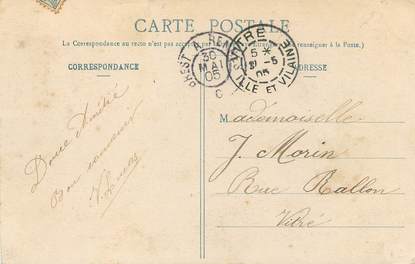 CARTE POSTALE
La Correspondance au recto n'est pas acceptée par renseigner à la Poste.)
CORRESPONDANCE
ADRESSE
BREST A RENNES
30
MAI
05
C
VITRÉ
5 *
31 -5
05
ILLE ET VILAINE
Douce Amitié
Bon souvenir
Mademoiselle
J. Morin
Rue Rallon
Vitré